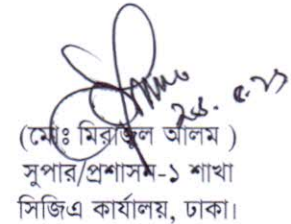 (মোঃ মিরাজুল আলম )
সুপার/প্রশাসন-১ শাখা
সিজিএ কার্যালয়, ঢাকা।